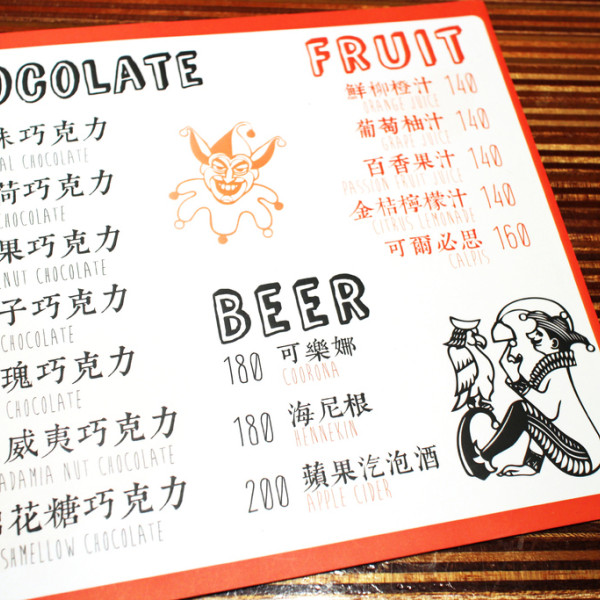 OCOLATE
味巧克力
AL CHOCOLATE
荷巧克力
CHOCOLATE
果巧克力
NUT CHOCOLATE
子巧克力
CHOCOLATE
瑰巧克力
CHOCOLATE
威夷巧克力
ADAMIA NUT CHOCOLATE
花糖巧克力
SHMELLOW CHOCOLATE
FRUIT
鮮柳橙汁 140
ORANGE JUICE
葡萄柚汁 140
GRAPE JUICE
百香果汁 140
PASSION FRUIT JUICE
金桔檸檬汁 140
CITRUS LEMONADE
可爾必思 160
CALPIS
BEER
180 可樂娜
COORONA
180 海尼根
HENNEKIN
200 蘋果汽泡酒
APPLE CIDER